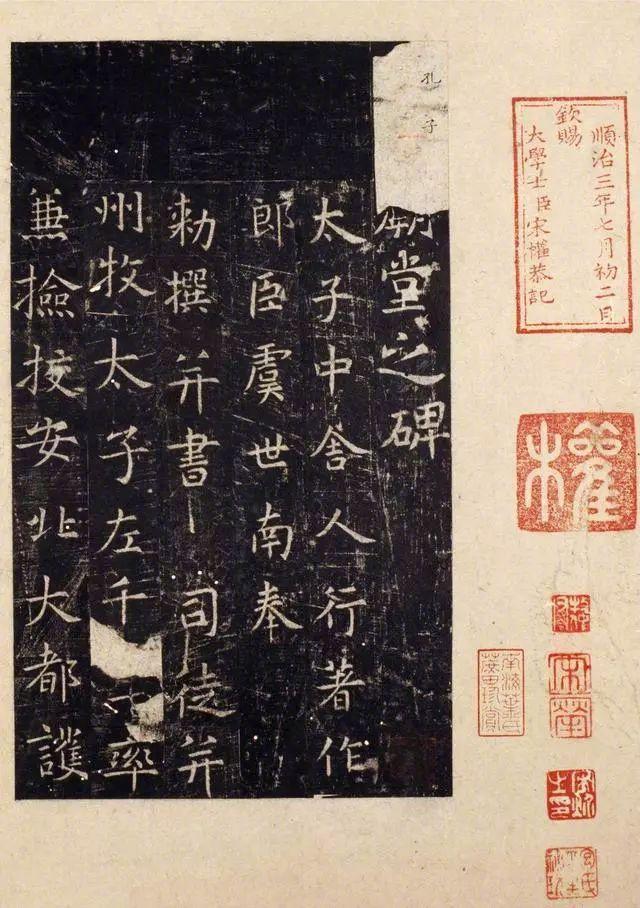 順治三年七月初二日
欽賜
大學士臣宋權恭記
權
孔子
廟堂之碑
太子中舍人行著作
郎臣虞世南奉
勅撰并書 司徒并
州牧太子左千 率
兼撿挍安北大都護